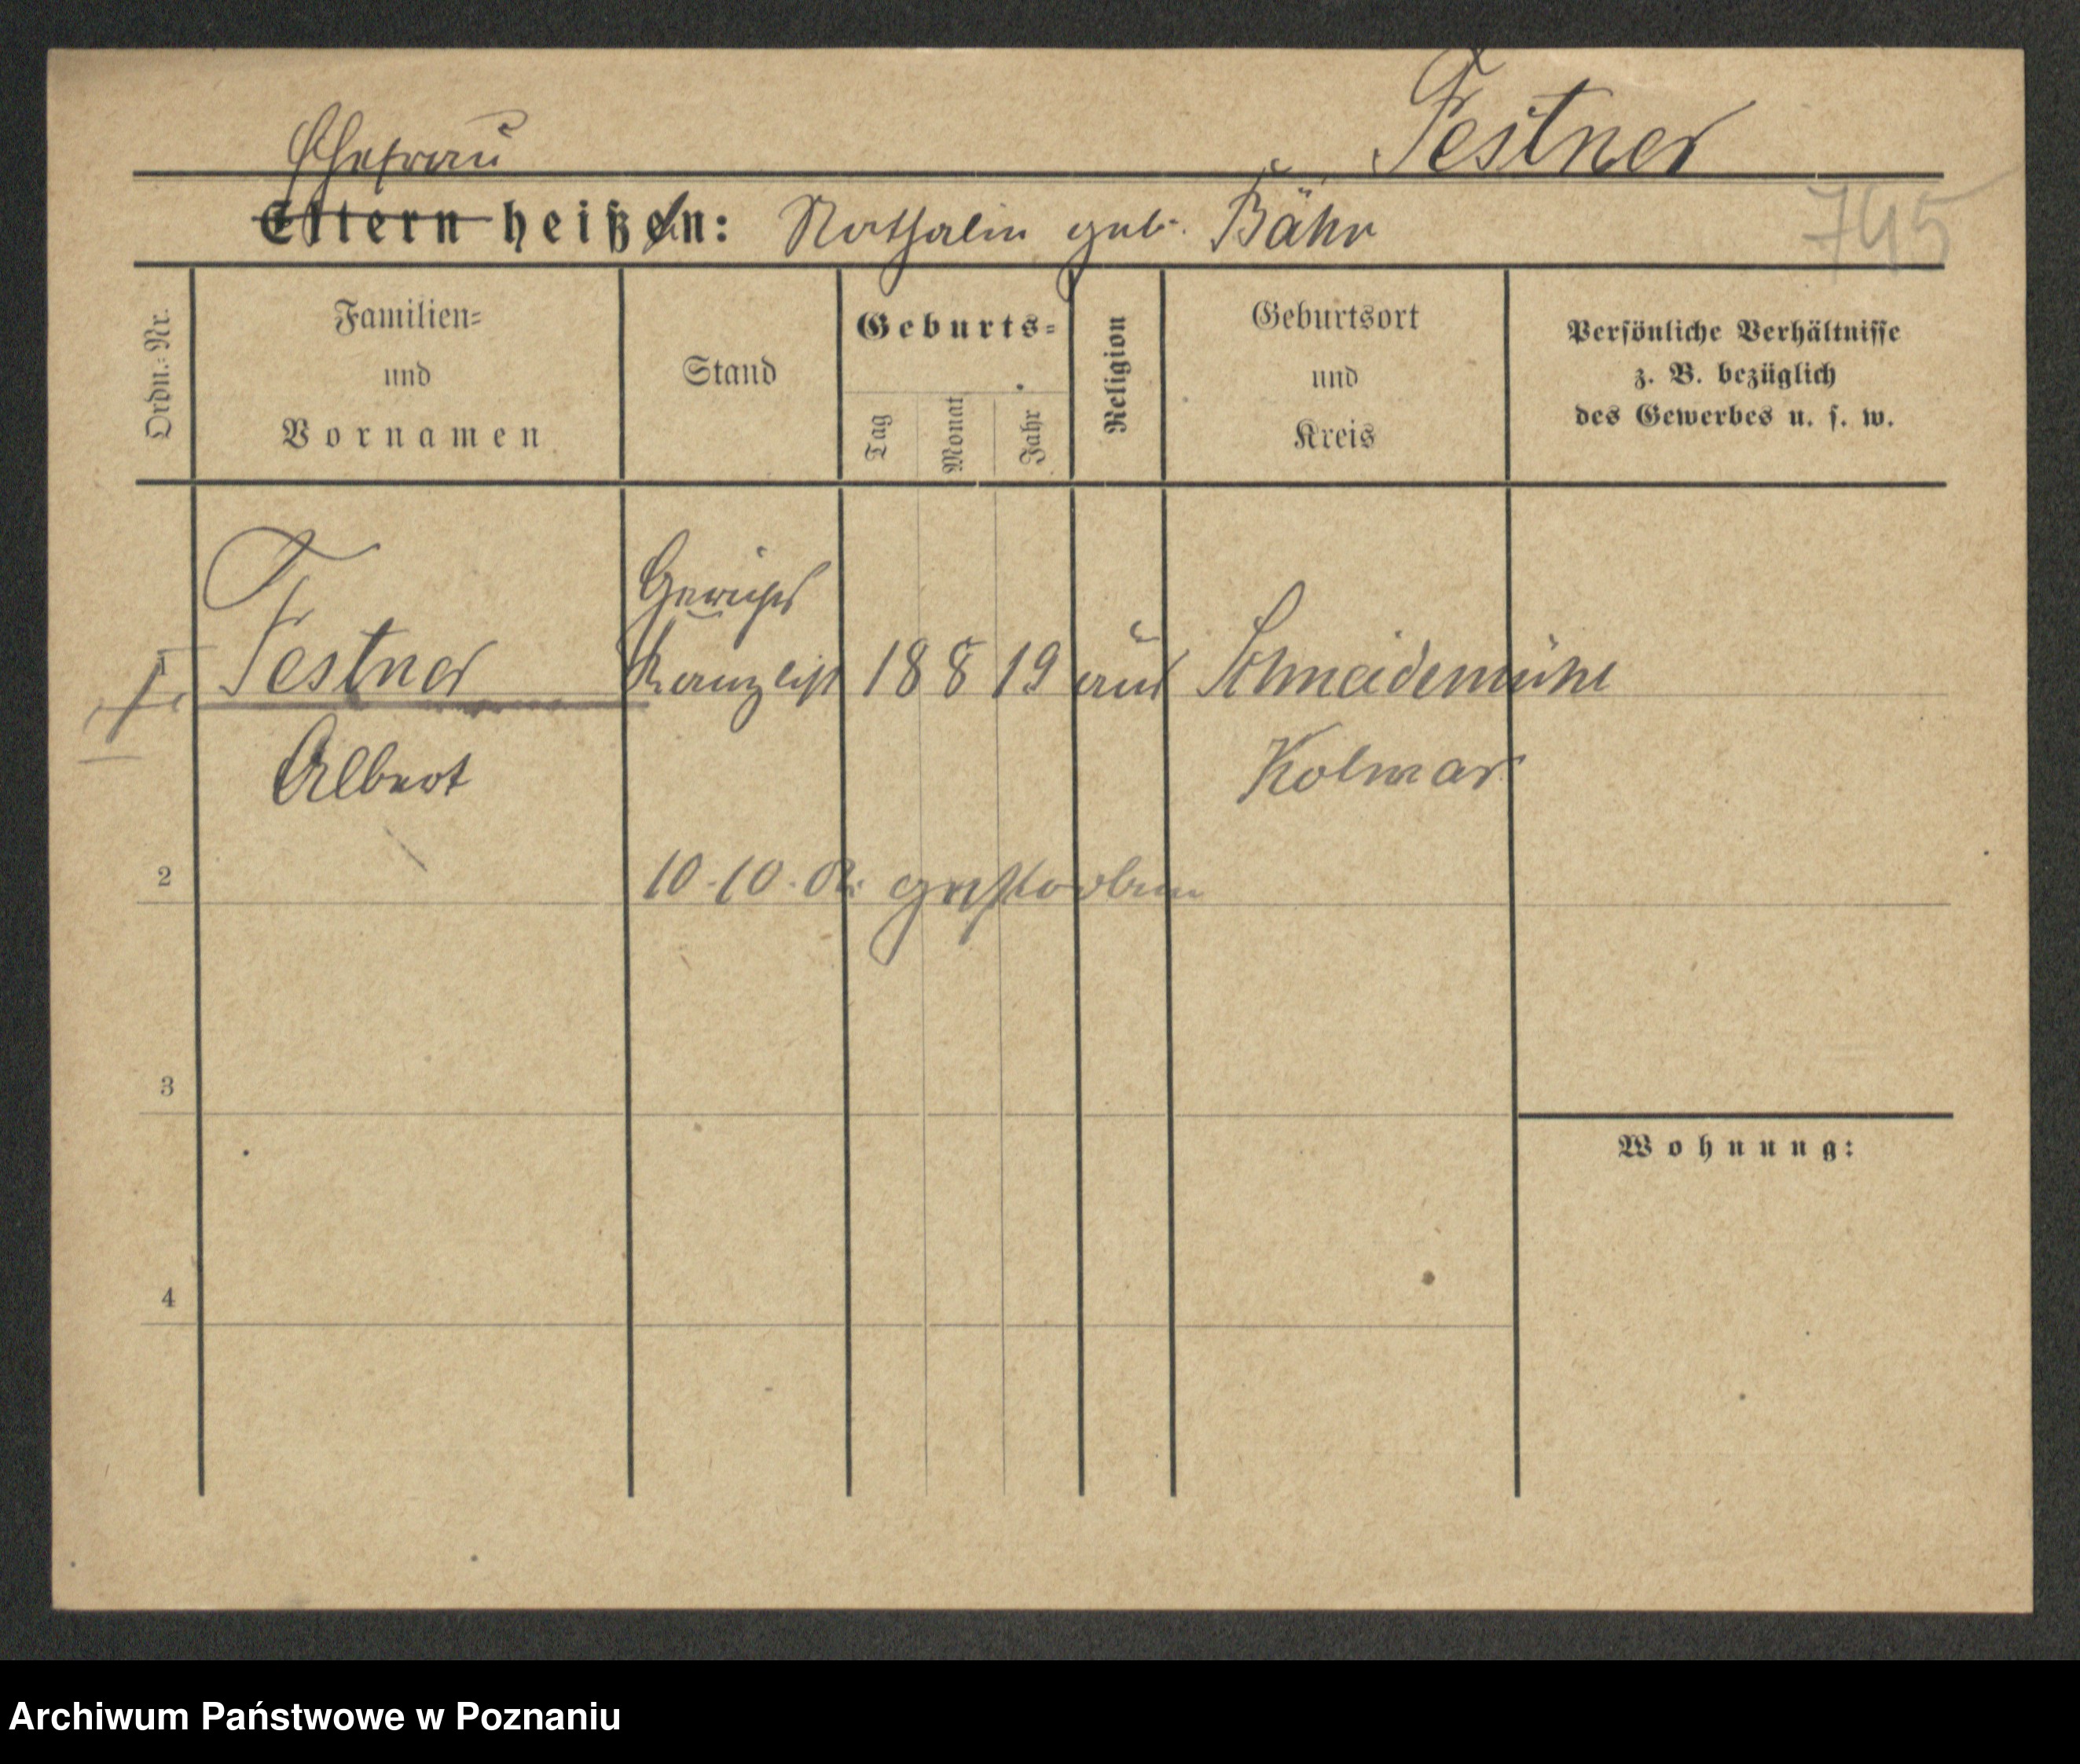 Festner
Ehefrau
Eltern heißen: Nathalie geb. Bähr
745
Ordn.-Nr.
Familien-
und
Vornamen
Stand
Geburts-
Tag
Monat
Jahr
Religion
Geburtsort
und
Kreis
Persönliche Verhältnisse
z. B. bezüglich
des Gewerbes u. s. w.
Gerichts
Festner Kanzlist 18 8 19 Schneidemühl
Albert Kolmar
2 10.10. gestorben
3
Wohnung:
4
Archiwum Państwowe w Poznaniu